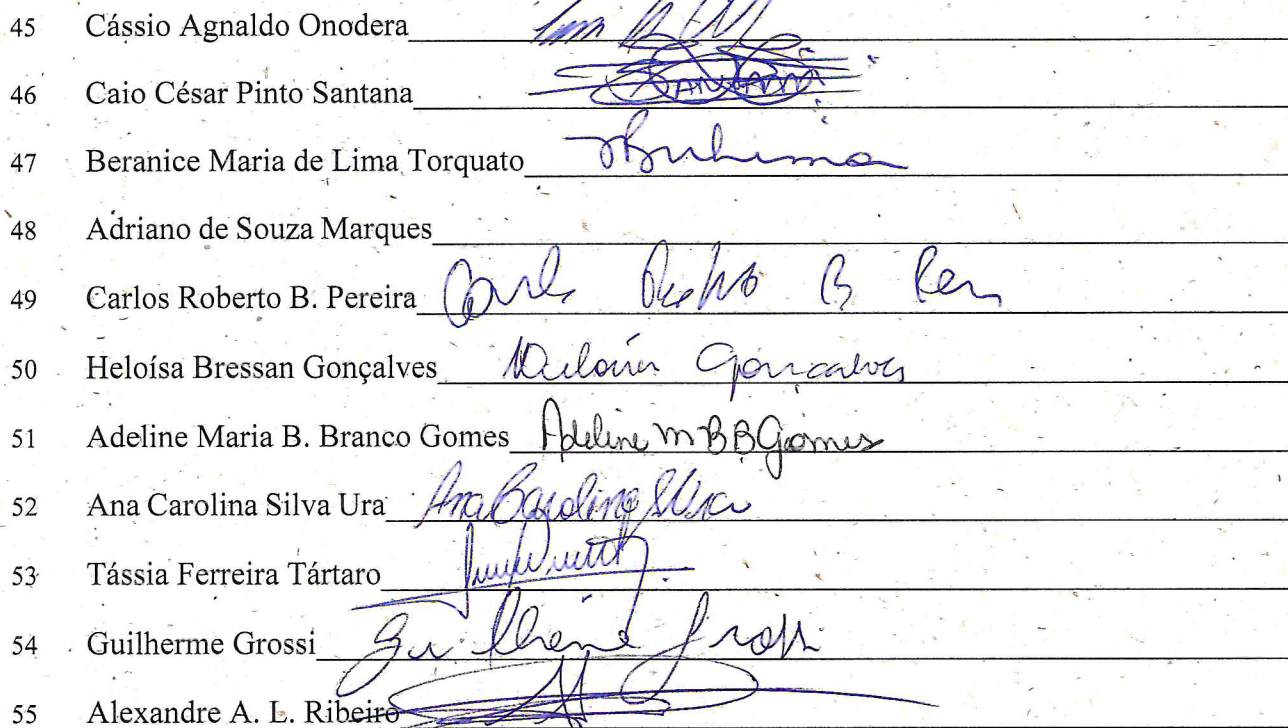 45 Cássio Agnaldo Onodera
46 Caio César Pinto Santana
47 Beranice Maria de Lima Torquato
48 Adriano de Souza Marques
49 Carlos Roberto B. Pereira
50 Heloísa Bressan Gonçalves Gonçalves
51 Adeline Maria B. Branco Gomes Adeline M B B Gomes
52 Ana Carolina Silva Ura Ana Carolina S Ura
53 Tássia Ferreira Tártaro
54 Guilherme Grossi Guilherme Grossi
55 Alexandre A. L. Ribeiro